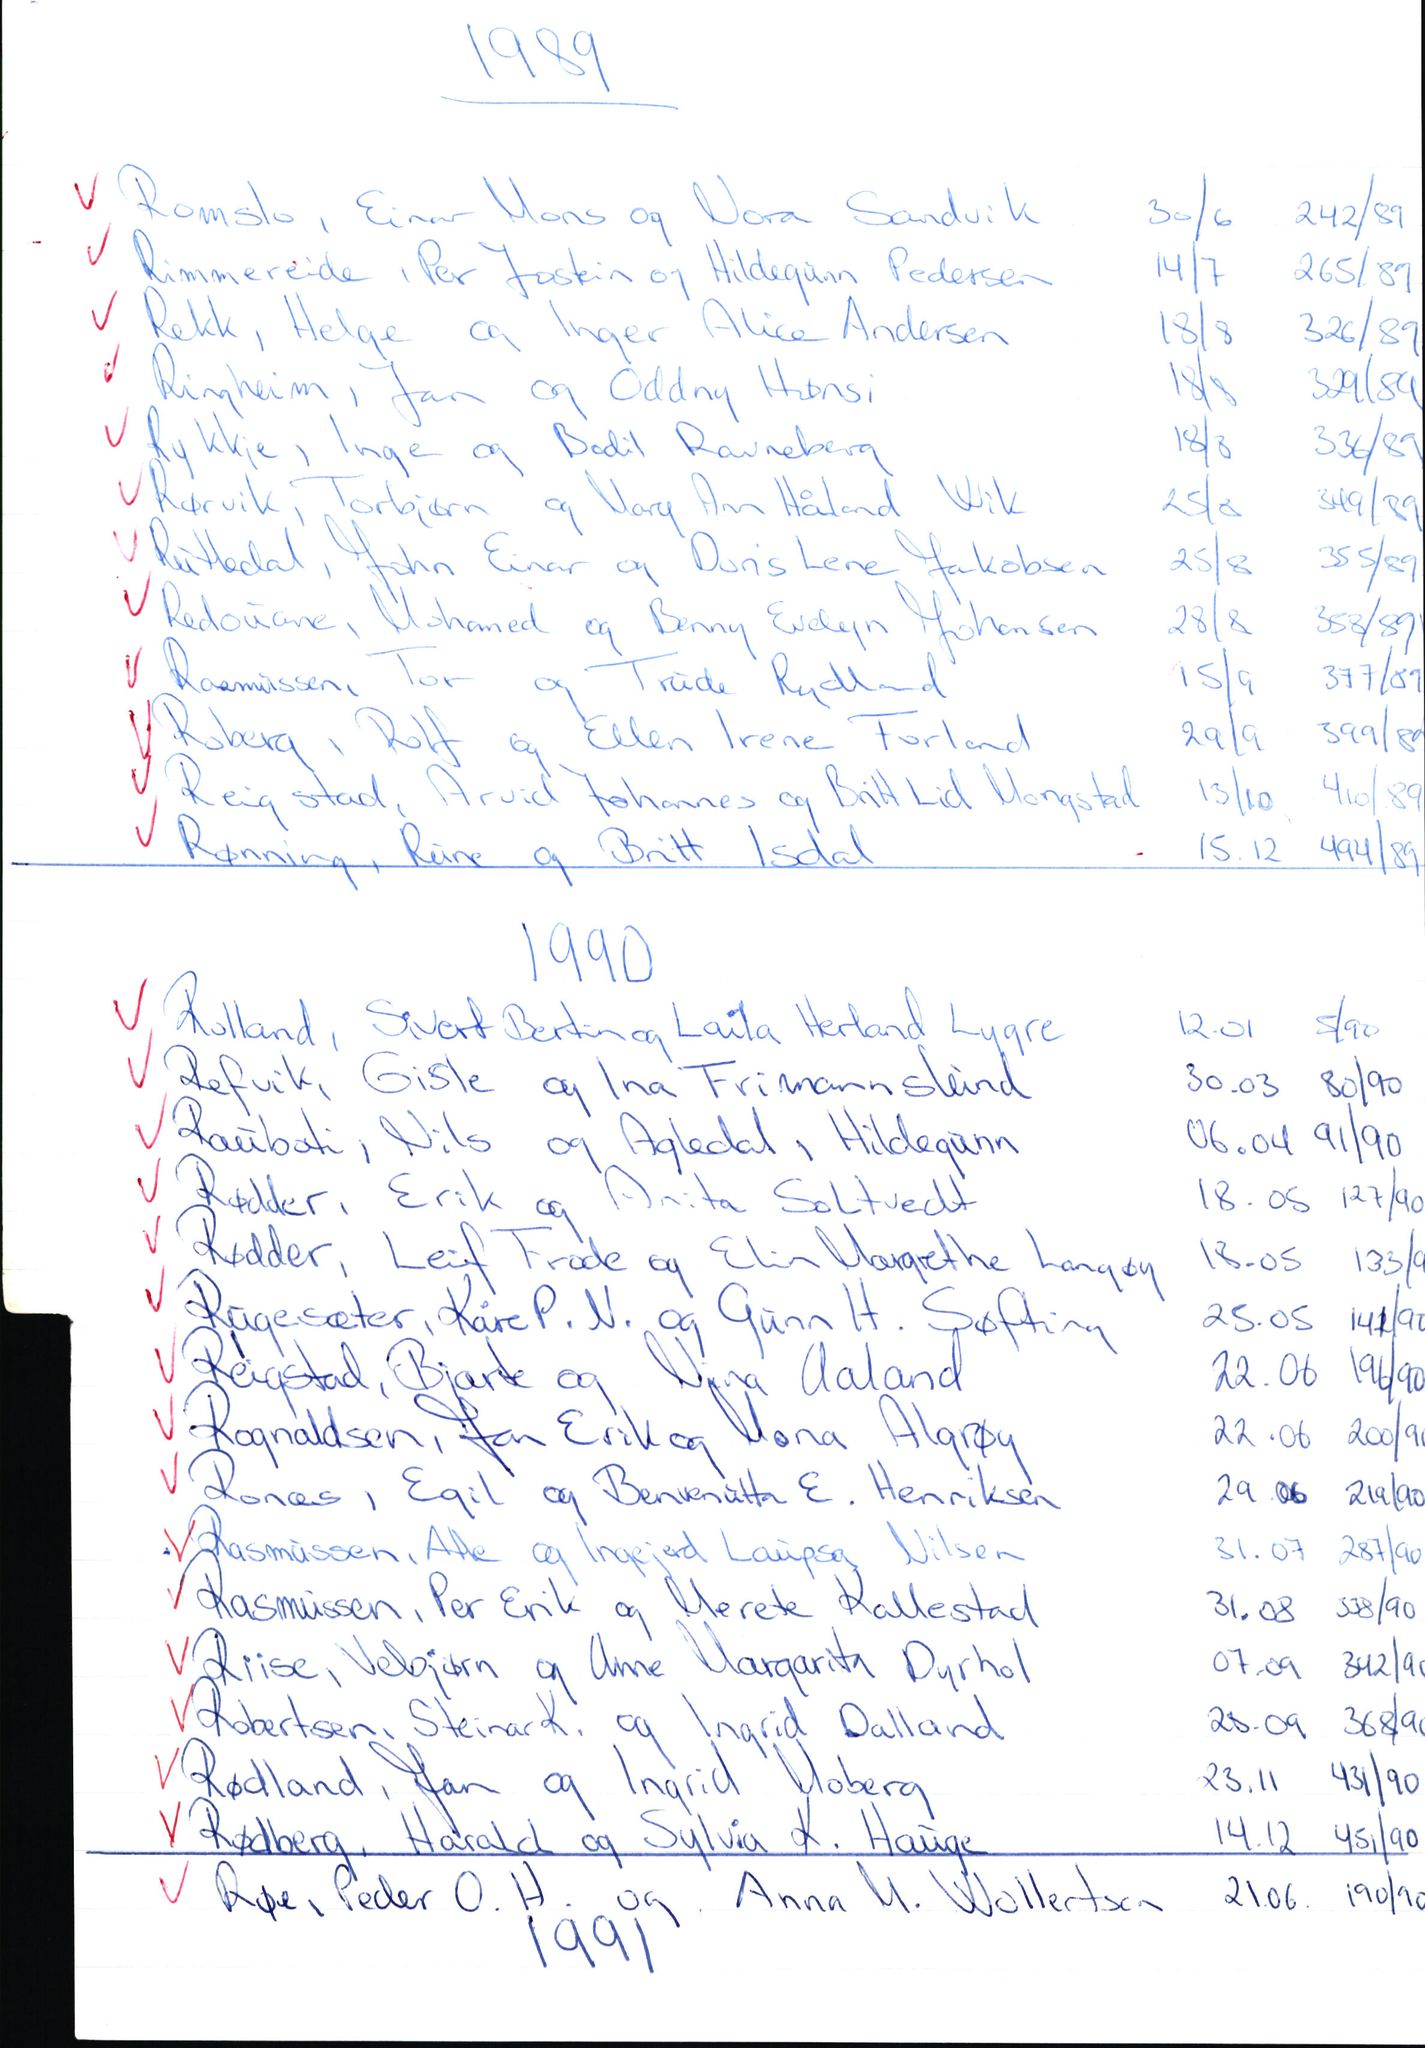 1989
Romslo, Einar Mons og Nora Sandvik 30/6 242/89
Rimmereide, Per Jostein og Hildegunn Pedersen 14/7 265/89
Rekk, Helge og Inger Alice Andersen 18/8 326/89
Ringheim, Jan og Oddny Hønsi 18/8 329/89
Rykkje, Inge og Bodil Ravneberg 18/8 336/89
Rørvik, Torbjørn og Mary Ann Håland Wik 25/8 349/89
Rutledal, John Einar og Doris Lene Jakobsen 25/8 355/89
Redouane, Mohamed og Benny Evelyn Johansen 28/8 358/89
Rasmussen, Tor og Trude Rydland 15/9 377/89
Roberg, Rolf og Ellen Irene Forland 29/9 399/89
Reigstad, Arvid Johannes og Britt Lid Mongstad 13/10 410/89
Rønning, Rune og Britt Isdal 15.12 494/89
1990
Rolland, Sivert Bertin og Laila Herland Lygre 12.01 5/90
Refvik, Gisle og Ina Frimannslund 30.03 80/90
Rauboti, Nils og Agledal, Hildegunn 06.04 91/90
Rødder, Erik og Anita Soltvedt 18.05 127/90
Rødder, Leif Frode og Elin Margrethe Langøy 18.05 133/9
Rugesæter, Kåre P. N. og Gunn H. Søfting 25.05 141/90
Reigstad, Bjarte og Nina Aaland 22.06 196/90
Rognaldsen, Jan Erik og Mona Algrøy 22.06 200/9
Ronæs, Egil og Benvenutta E. Henriksen 29.06 219/90
Rasmussen, Atle og Ingejerd Laupsa Nilsen 31.07 287/90
Rasmussen, Per Erik og Merete Kallestad 31.08 338/90
Riise, Vebjørn og Anne Margarita Dyrhol 07.09 342/9
Robertsen, Steinar K. og Ingrid Dalland 28.09 368/9
Rødland, Jan og Ingrid Moberg 23.11 431/90
Rødberg, Harald og Sylvia K. Hauge 14.12 451/90
Røe, Peder O. H. og Anna M. Wollertsen 21.06. 190/90
1991